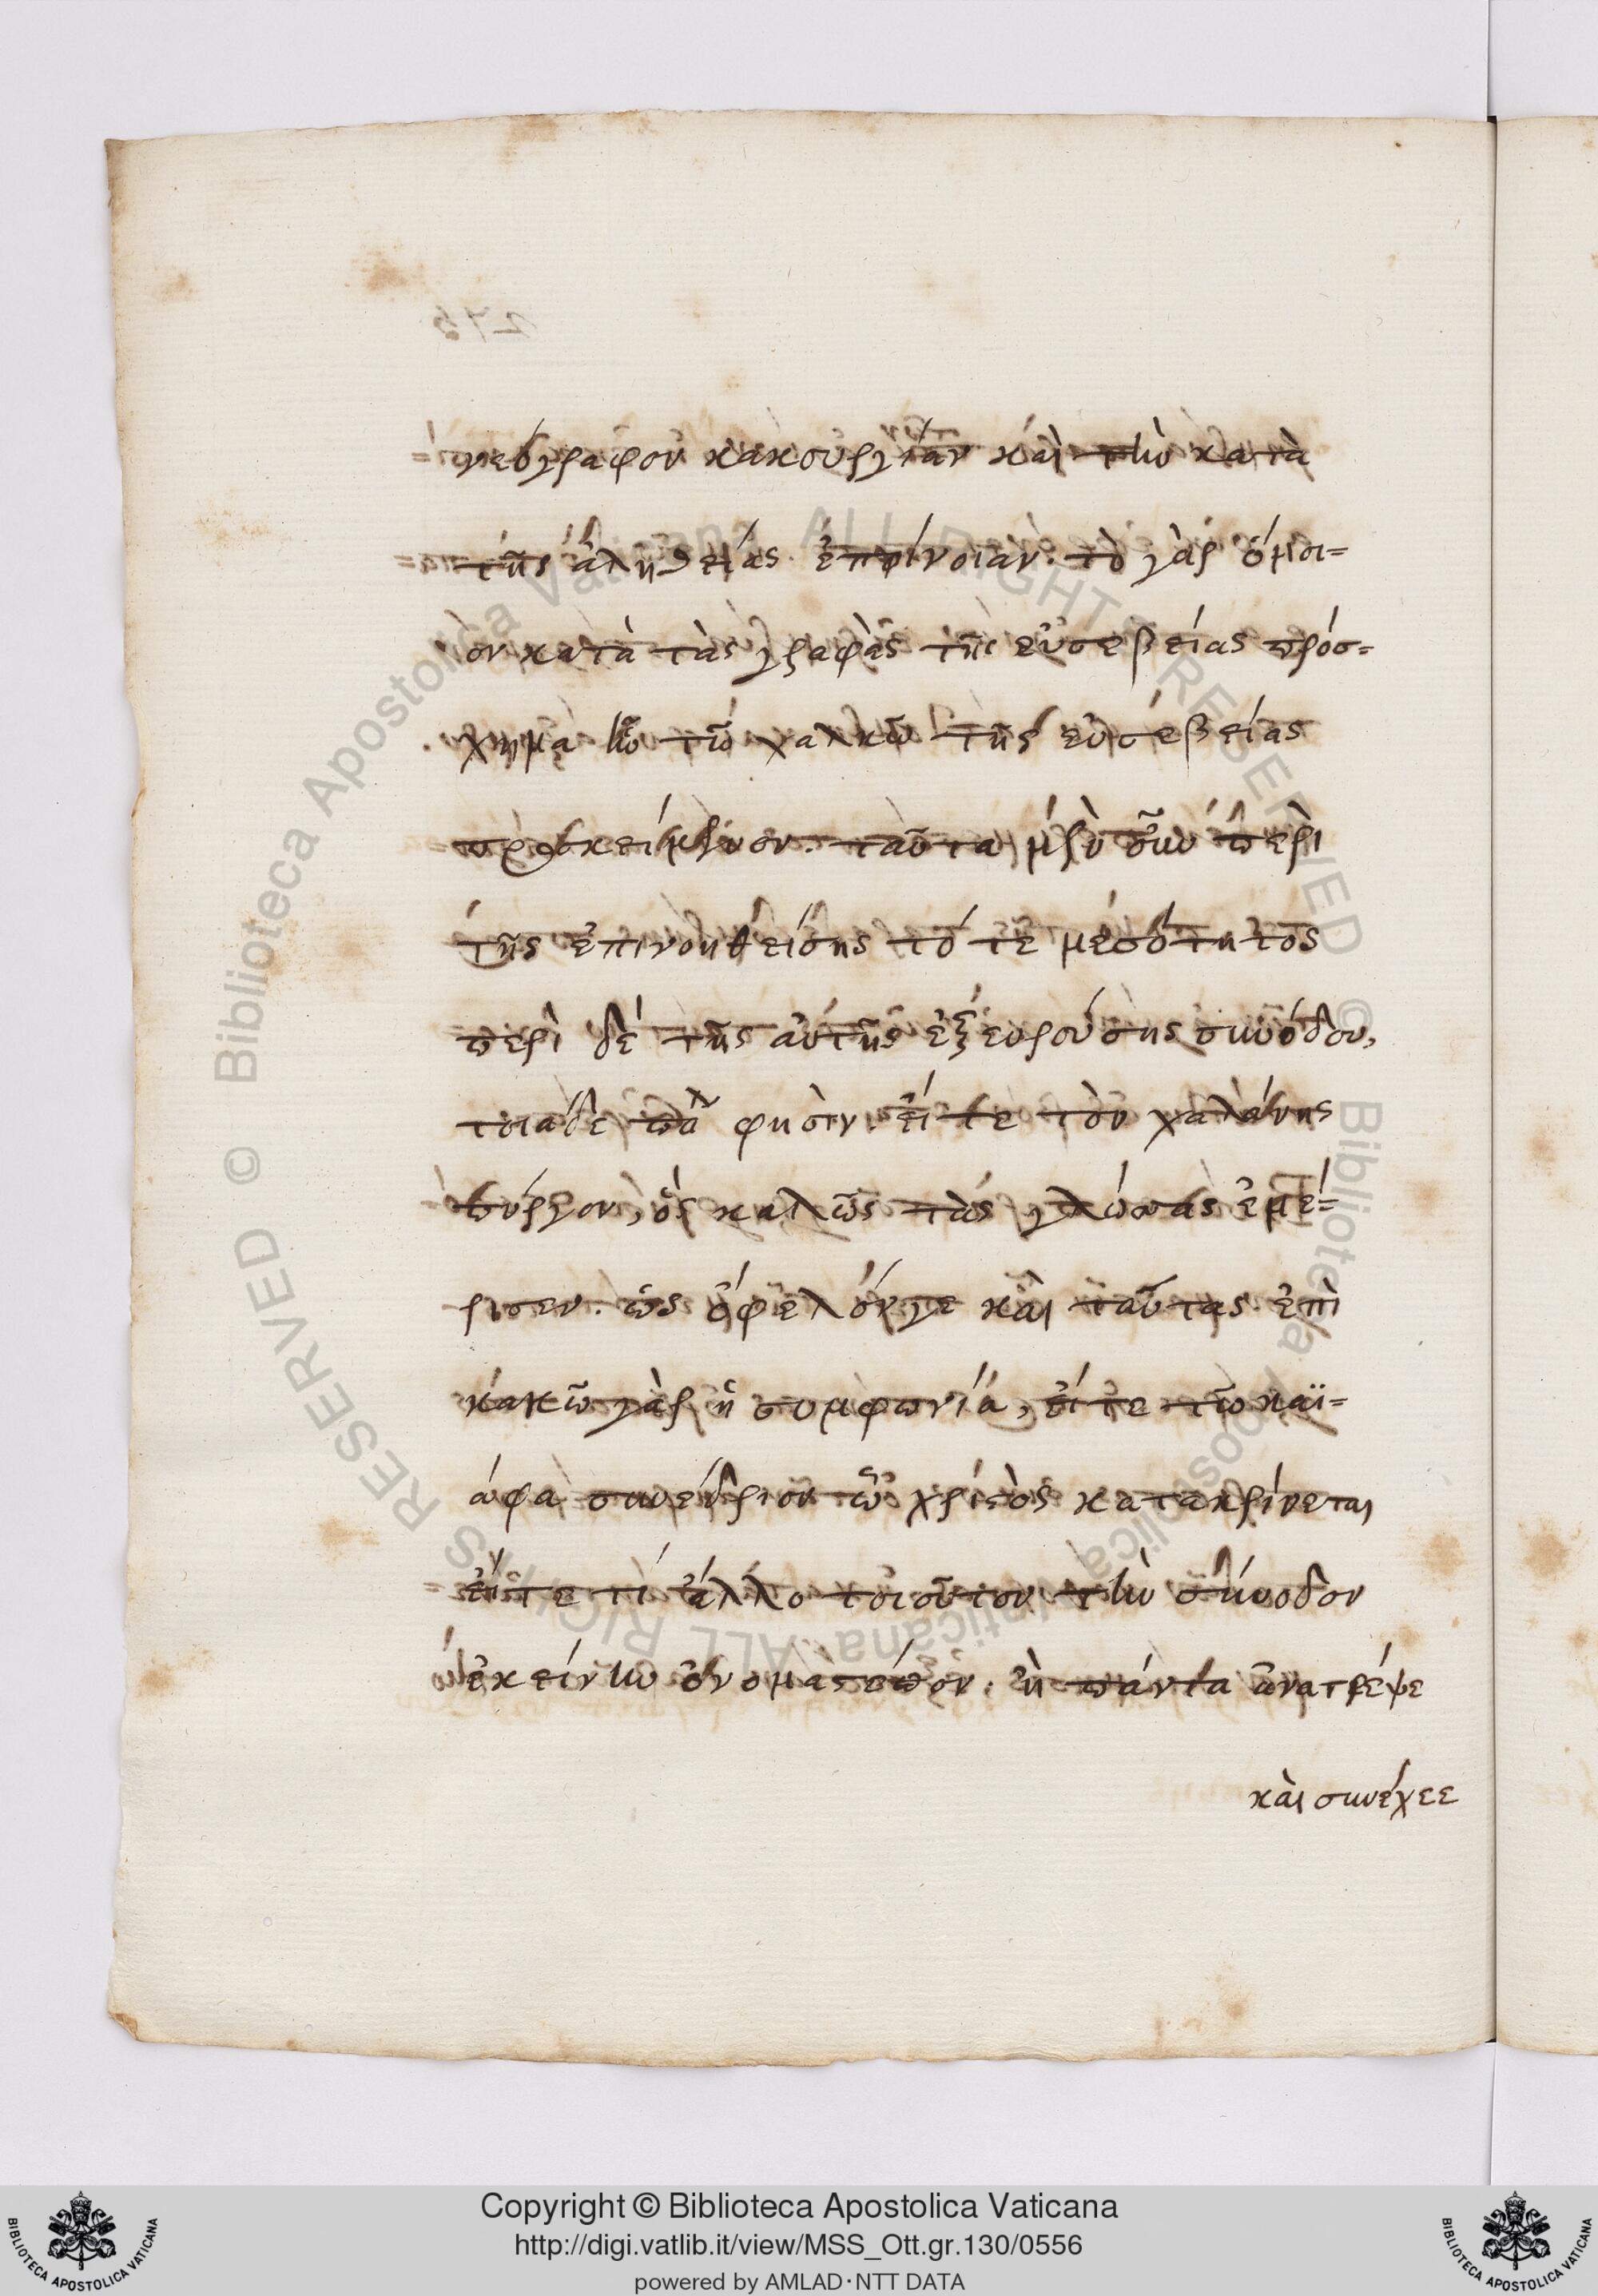 γεόγραφον κακουργίαν καὶ τὴν κατὰ
τῆς ἀληθείας ἐπίνοιαν. τὸ γὰρ ὅμοι=
ον κατὰ τὰς γραφὰς τῆς εὐσεβείας πρόσ=
χημα ἦν τῶ χαλκῶ τῆς εὐσεβείας
προσκείμενον. ταῦτα μὲν οὖν περὶ
τῆς ἐπινοηθείσης τότε μεσότητος
περὶ δὲ τῆς αὐτῆς ἐξευρούσης συνόδου,
τοιάδε πά φησιν. εἴτε τὸν χαλάνης
πύργον, ὃς καλῶς τὰς γλώσσας ἐμέ=
ρισεν. ὡς ὄφελόν γε καὶ ταύτας ἐπὶ
κακῶ γὰρ ἡ συμφωνία, εἴτε τῶ καϊ=
άφα συνέδριον ὧ χριστὸς κατακρίνεται
εἴτε τί ἄλλο τοιοῦτον τὴν σύνοδον
ἐκείνην ὀνομαστέον. ἢ πάντα ἀνατρέψε
καὶ συνέχεε
Copyright © Biblioteca Apostolica Vaticana
http://digi.vatlib.it/view/MSS_Ott.gr.130/0556
powered by AMLAD·NTT DATA
© Biblioteca Apostolica Vaticana ALL RIGHTS RESERVED
© Biblioteca Apostolica Vaticana ALL RIGHTS RESERVED
BIBLIOTECA APOSTOLICA VATICANA
BIBLIOTECA APOSTOLICA VATICANA